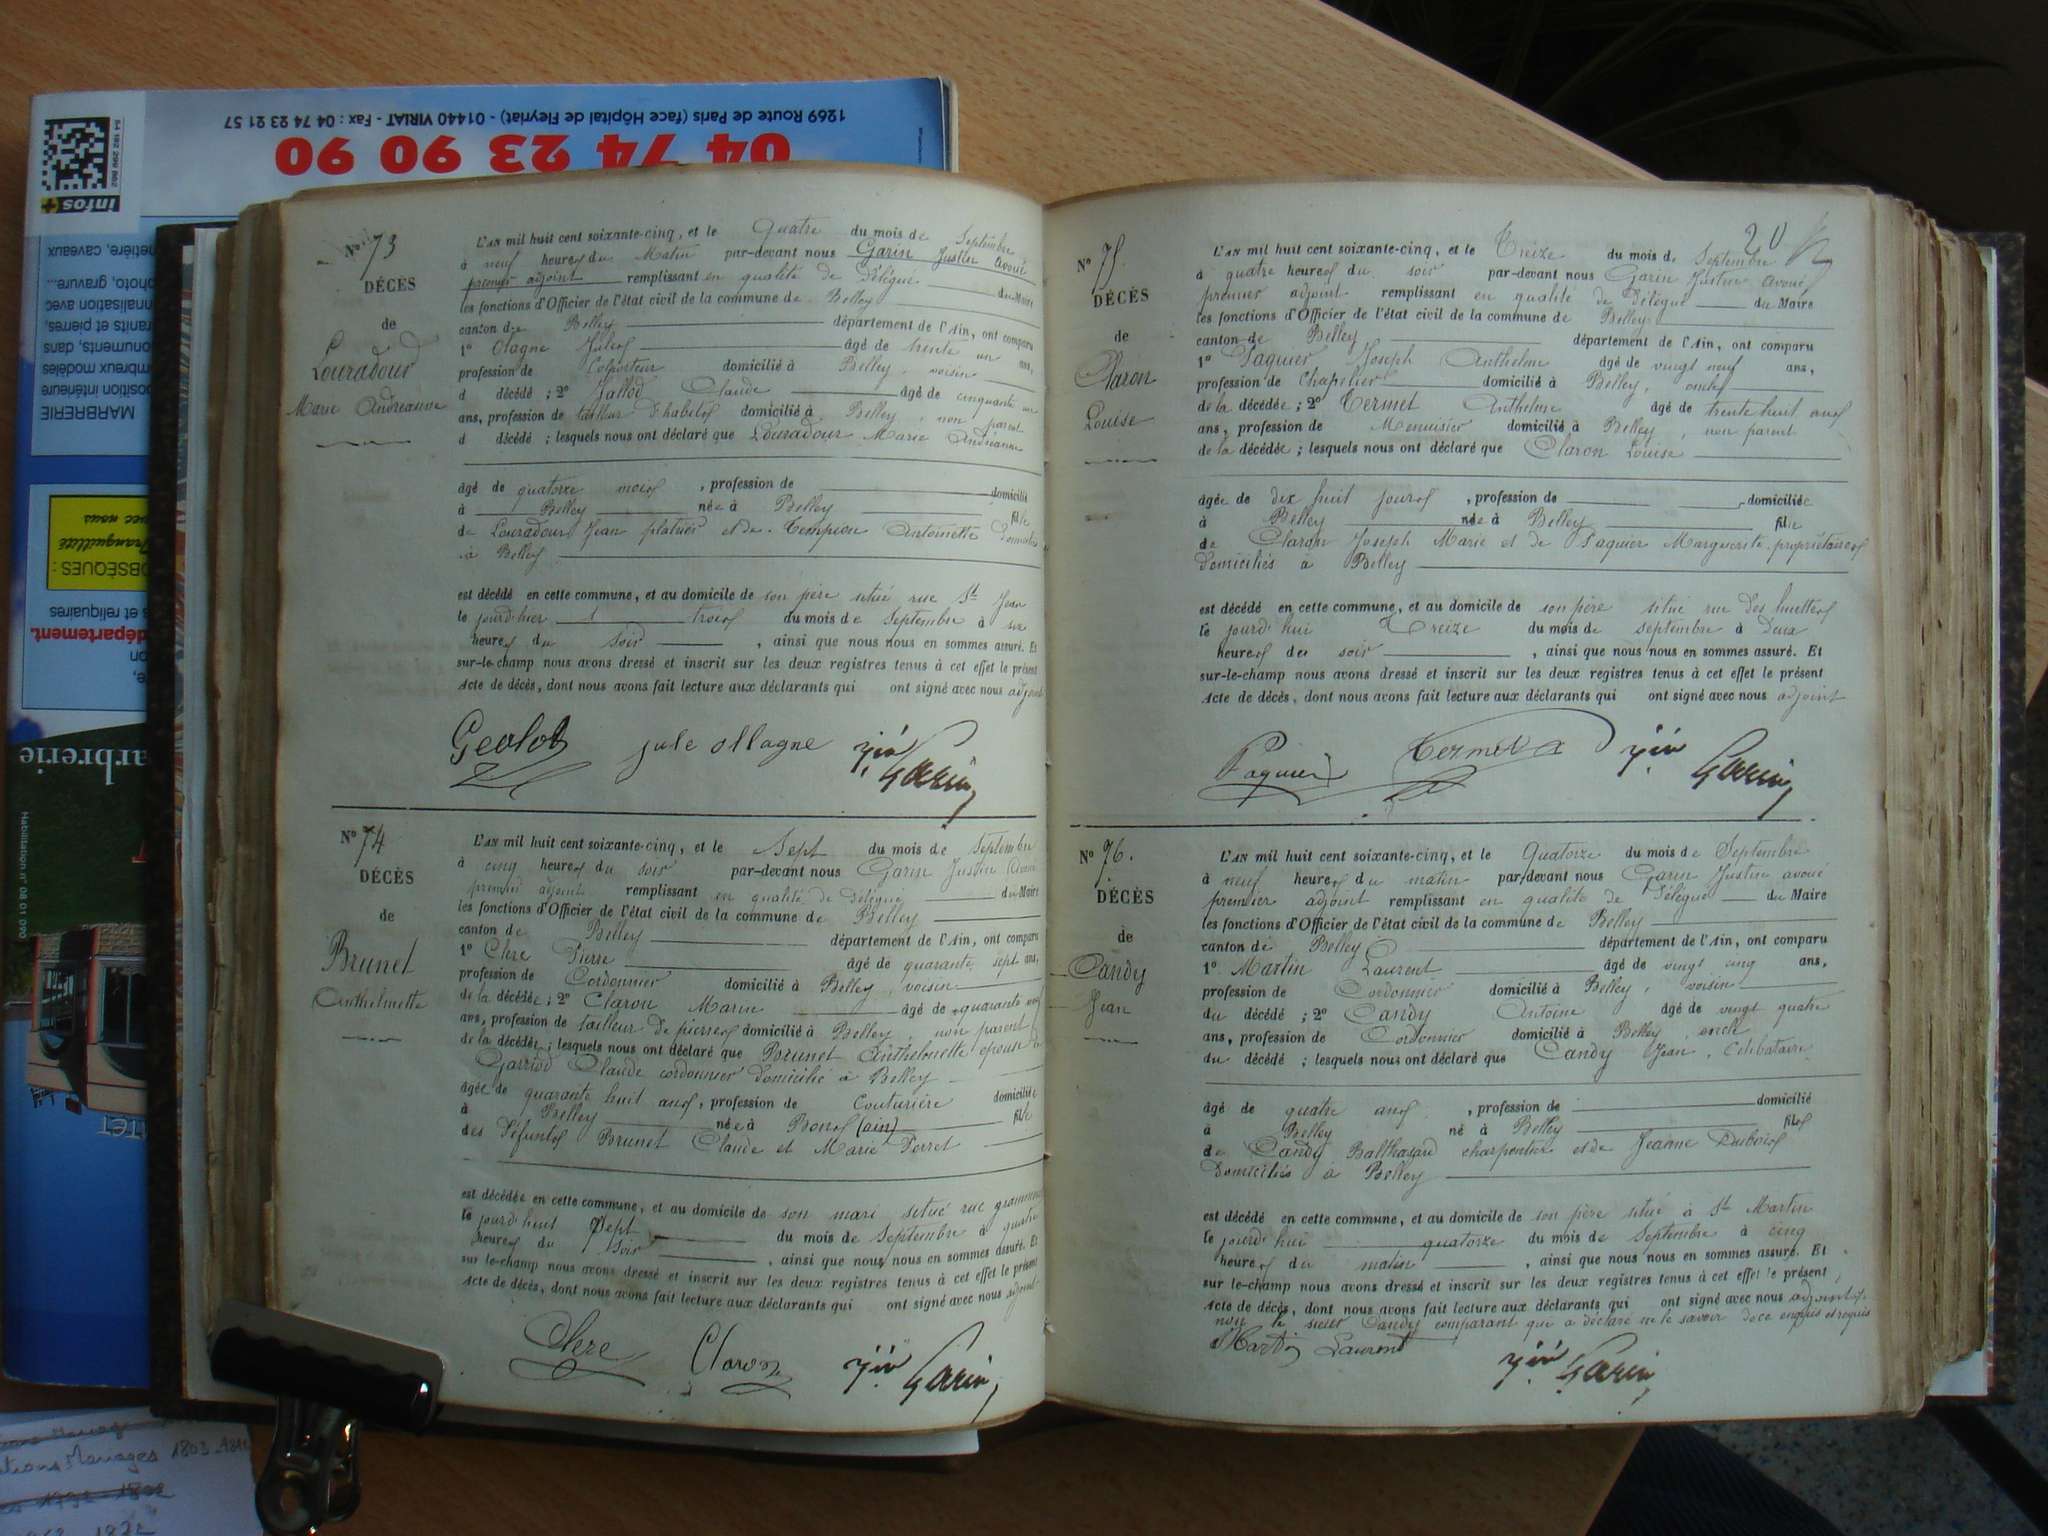 1269 Route de Paris (face Hôpital de Fleyriat) - 01440 VIRIAT - Fax : 04 74 23 21 57
04 74 23 90 90
infos+
MARBRERIE
OBSÈQUES :
Tranquillité
département.
Habilitation n° 08 01 090
N° 73
DÉCÈS
de
Louradour
Marie Andréanne
L'AN mil huit cent soixante-cinq, et le Quatre du mois de Septembre
à neuf heures du Matin par-devant nous Garin Justin avoué
premier adjoint remplissant en qualité de Délégué du Maire
les fonctions d'Officier de l'état civil de la commune de Belley
canton de Belley département de l'Ain, ont comparu
1° Olagne Jules âgé de trente un ans,
profession de Colporteur domicilié à Belley, voisin
d décédé ; 2° Jallod Claude âgé de cinquante un
ans, profession de tailleur d'habits domicilié à Belley, non parent
d décédé ; lesquels nous ont déclaré que Louradour Marie Andréanne
âgé de quatorze mois, profession de domicilié
à Belley née à Belley fille
de Louradour Jean platrier et de Tempion Antoinette Domiciliés
à Belley
est décédé en cette commune, et au domicile de son père situé rue St Jean
le jourd'hier trois du mois de Septembre à six
heures du soir, ainsi que nous nous en sommes assuré. Et
sur-le-champ nous avons dressé et inscrit sur les deux registres tenus à cet effet le présent
Acte de décès, dont nous avons fait lecture aux déclarants qui ont signé avec nous adjoint
jule ollagne Jin Garin
N° 74
DÉCÈS
de
Brunet
Anthelmette
L'AN mil huit cent soixante-cinq, et le Sept du mois de Septembre
à cinq heures du soir par-devant nous Garin Justin avoué
premier adjoint remplissant en qualité de Délégué du Maire
les fonctions d'Officier de l'état civil de la commune de Belley
canton de Belley département de l'Ain, ont comparu
1° Clere Pierre âgé de quarante sept ans,
profession de Cordonnier domicilié à Belley, voisin
de la décédée ; 2° Claron Marin âgé de quarante neuf
ans, profession de tailleur de pierres domicilié à Belley, non parent
de la décédée ; lesquels nous ont déclaré que Brunet Anthelmette épouse de
Garriod Claude cordonnier domicilié à Belley
âgée de quarante huit ans, profession de Couturière domiciliée
à Belley née à Bons (ain) fille
des Défunts Brunet Claude et Marie Perret
est décédée en cette commune, et au domicile de son mari situé rue grammont
le jourd'huit Sept du mois de Septembre à quatre
heures du Soir, ainsi que nous nous en sommes assuré. Et
sur-le-champ nous avons dressé et inscrit sur les deux registres tenus à cet effet le présent
Acte de décès, dont nous avons fait lecture aux déclarants qui ont signé avec nous adjoint
Clere Claron Jin Garin
20
N° 75
DÉCÈS
de
Claron
Louise
L'AN mil huit cent soixante-cinq, et le Treize du mois de Septembre
à quatre heures du soir par-devant nous Garin Justin avoué
premier adjoint remplissant en qualité de Délégué du Maire
les fonctions d'Officier de l'état civil de la commune de Belley
canton de Belley département de l'Ain, ont comparu
1° Paquier Joseph Anthelme âgé de vingt neuf ans,
profession de Chapelier domicilié à Belley, oncle
de la décédée ; 2° Termet Anthelme âgé de trente huit ans
ans, profession de Menuisier domicilié à Belley, non parent
de la décédée ; lesquels nous ont déclaré que Claron Louise
âgée de dix huit jours, profession de domiciliée
à Belley née à Belley fille
de Claron Joseph Marie et de Paquier Marguerite propriétaires
Domiciliés à Belley
est décédé en cette commune, et au domicile de son père situé rue Des huttes
le jourd'hui Treize du mois de septembre à Deux
heures du soir, ainsi que nous nous en sommes assuré. Et
sur-le-champ nous avons dressé et inscrit sur les deux registres tenus à cet effet le présent
Acte de décès, dont nous avons fait lecture aux déclarants qui ont signé avec nous adjoint
Paquier Termet Jin Garin
N° 76.
DÉCÈS
de
Candy
Jean
L'AN mil huit cent soixante-cinq, et le Quatorze du mois de Septembre
à neuf heures du matin par-devant nous Garin Justin avoué
premier adjoint remplissant en qualité de Délégué du Maire
les fonctions d'Officier de l'état civil de la commune de Belley
canton de Belley département de l'Ain, ont comparu
1° Martin Laurent âgé de vingt cinq ans,
profession de Cordonnier domicilié à Belley, voisin
du décédé ; 2° Candy Antoine âgé de vingt quatre
ans, profession de Cordonnier domicilié à Belley, oncle
du décédé ; lesquels nous ont déclaré que Candy Jean, Célibataire
âgé de quatre ans, profession de domicilié
à Belley né à Belley fils
de Candy Balthazard charpentier et de Jeanne Dubois
Domiciliés à Belley
est décédé en cette commune, et au domicile de son père situé à St Martin
le jourd'hui quatorze du mois de Septembre à cinq
heures du matin, ainsi que nous nous en sommes assuré. Et
sur-le-champ nous avons dressé et inscrit sur les deux registres tenus à cet effet le présent
Acte de décès, dont nous avons fait lecture aux déclarants qui ont signé avec nous adjoint
non le sieur Candy comparant qui a déclaré ne le savoir de ce enquis et requis
Martin Laurent Jin Garin
Mariages 1803